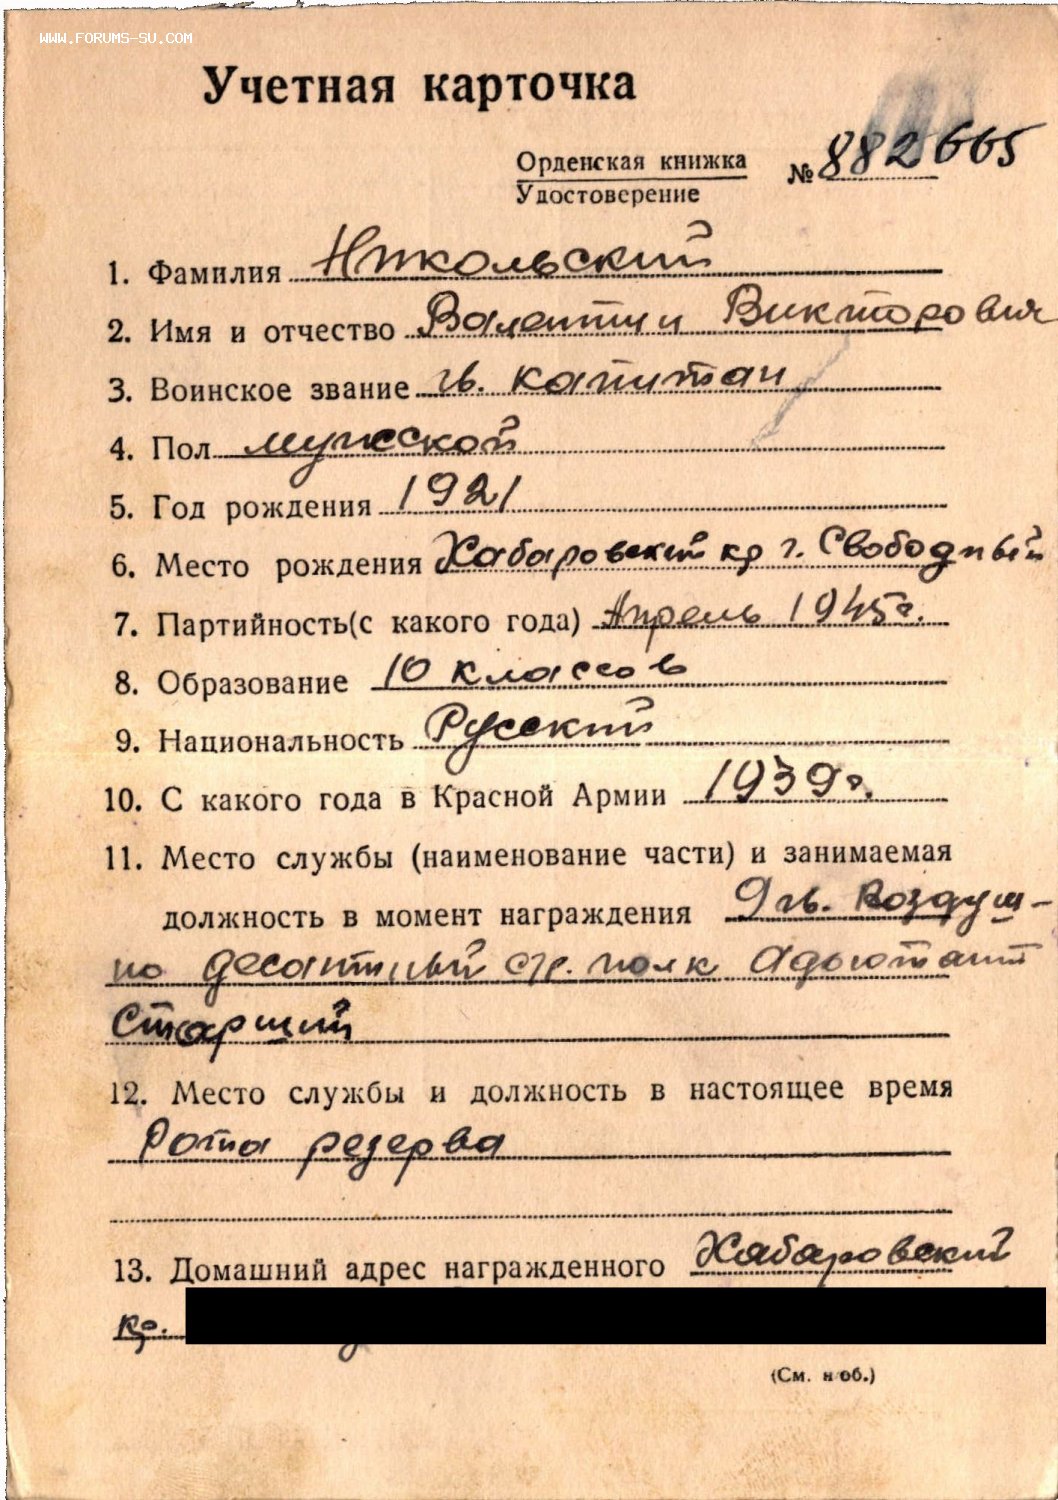 WWW.FORUMS-SU.COM
Учетная карточка
Орденская книжка
Удостоверение
№ 882665
1. Фамилия Никольский
2. Имя и отчество Валентин Викторович
3. Воинское звание гв. капитан
4. Пол мужской
5. Год рождения 1921
6. Место рождения Хабаровский кр г. Свободный
7. Партийность(с какого года) Апрель 1945г.
8. Образование 10 классов
9. Национальность Русский
10. С какого года в Красной Армии 1939г.
11. Место службы (наименование части) и занимаемая
должность в момент награждения 9 гв. воздуш-
но десантный стр. полк Адъютант
Старший
12. Место службы и должность в настоящее время
Рота резерва
13. Домашний адрес награжденного Хабаровский
кр.
(См. н об.)